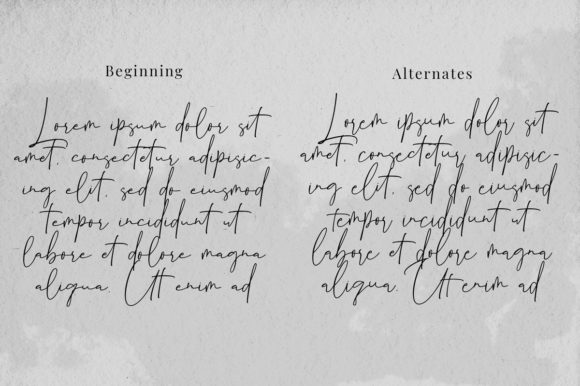 Beginning
Lorem ipsum dolor sit
amet, consectetur adipisic-
ing elit, sed do eiusmod
tempor incididunt ut
labore et dolore magna
aliqua. Ut enim ad
Alternates
Lorem ipsum dolor sit
amet, consectetur adipisic-
ing elit, sed do eiusmod
tempor incididunt ut
labore et dolore magna
aliqua. Ut enim ad